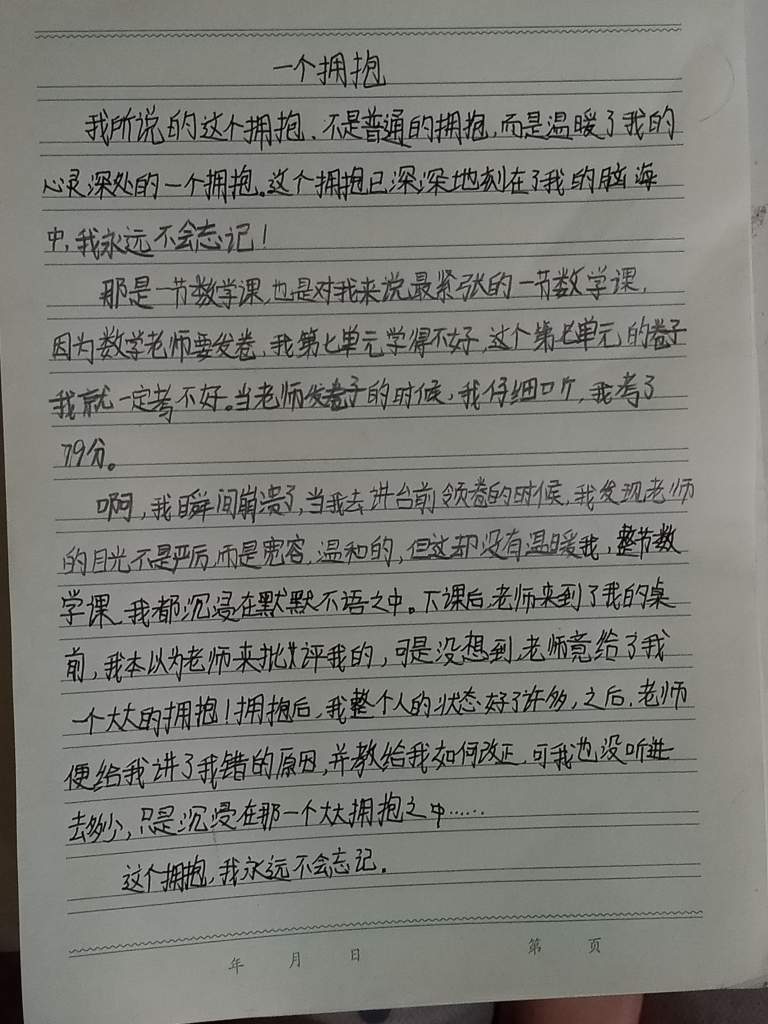 一个拥抱
我所说的这个拥抱、不是普通的拥抱,而是温暖了我的
心灵深处的一个拥抱。这个拥抱已深深地刻在了我的脑海
中,我永远不会忘记!
那是一节数学课,也是对我来说最紧张的一节数学课,
因为数学老师要发卷,我第七单元学得不好,这个第七单元的卷子
我就一定考不好。当老师发卷子的时候,我仔细听,我考了
79分。
啊,我瞬间崩溃了,当我去讲台前领卷的时候,我发现老师
的目光不是严厉,而是宽容、温和的,但这却没有温暖我,整节数
学课,我都沉浸在默默不语之中。下课后,老师来到了我的桌
前,我本以为老师来批评我的,可是没想到,老师竟给了我
一个大大的拥抱!拥抱后,我整个人的状态好了许多,之后,老师
便给我讲了我错的原因,并教给我如何改正,可我也没听进
去多少,只是沉浸在那一个大大拥抱之中……
这个拥抱,我永远不会忘记。
年 月 日 第 页